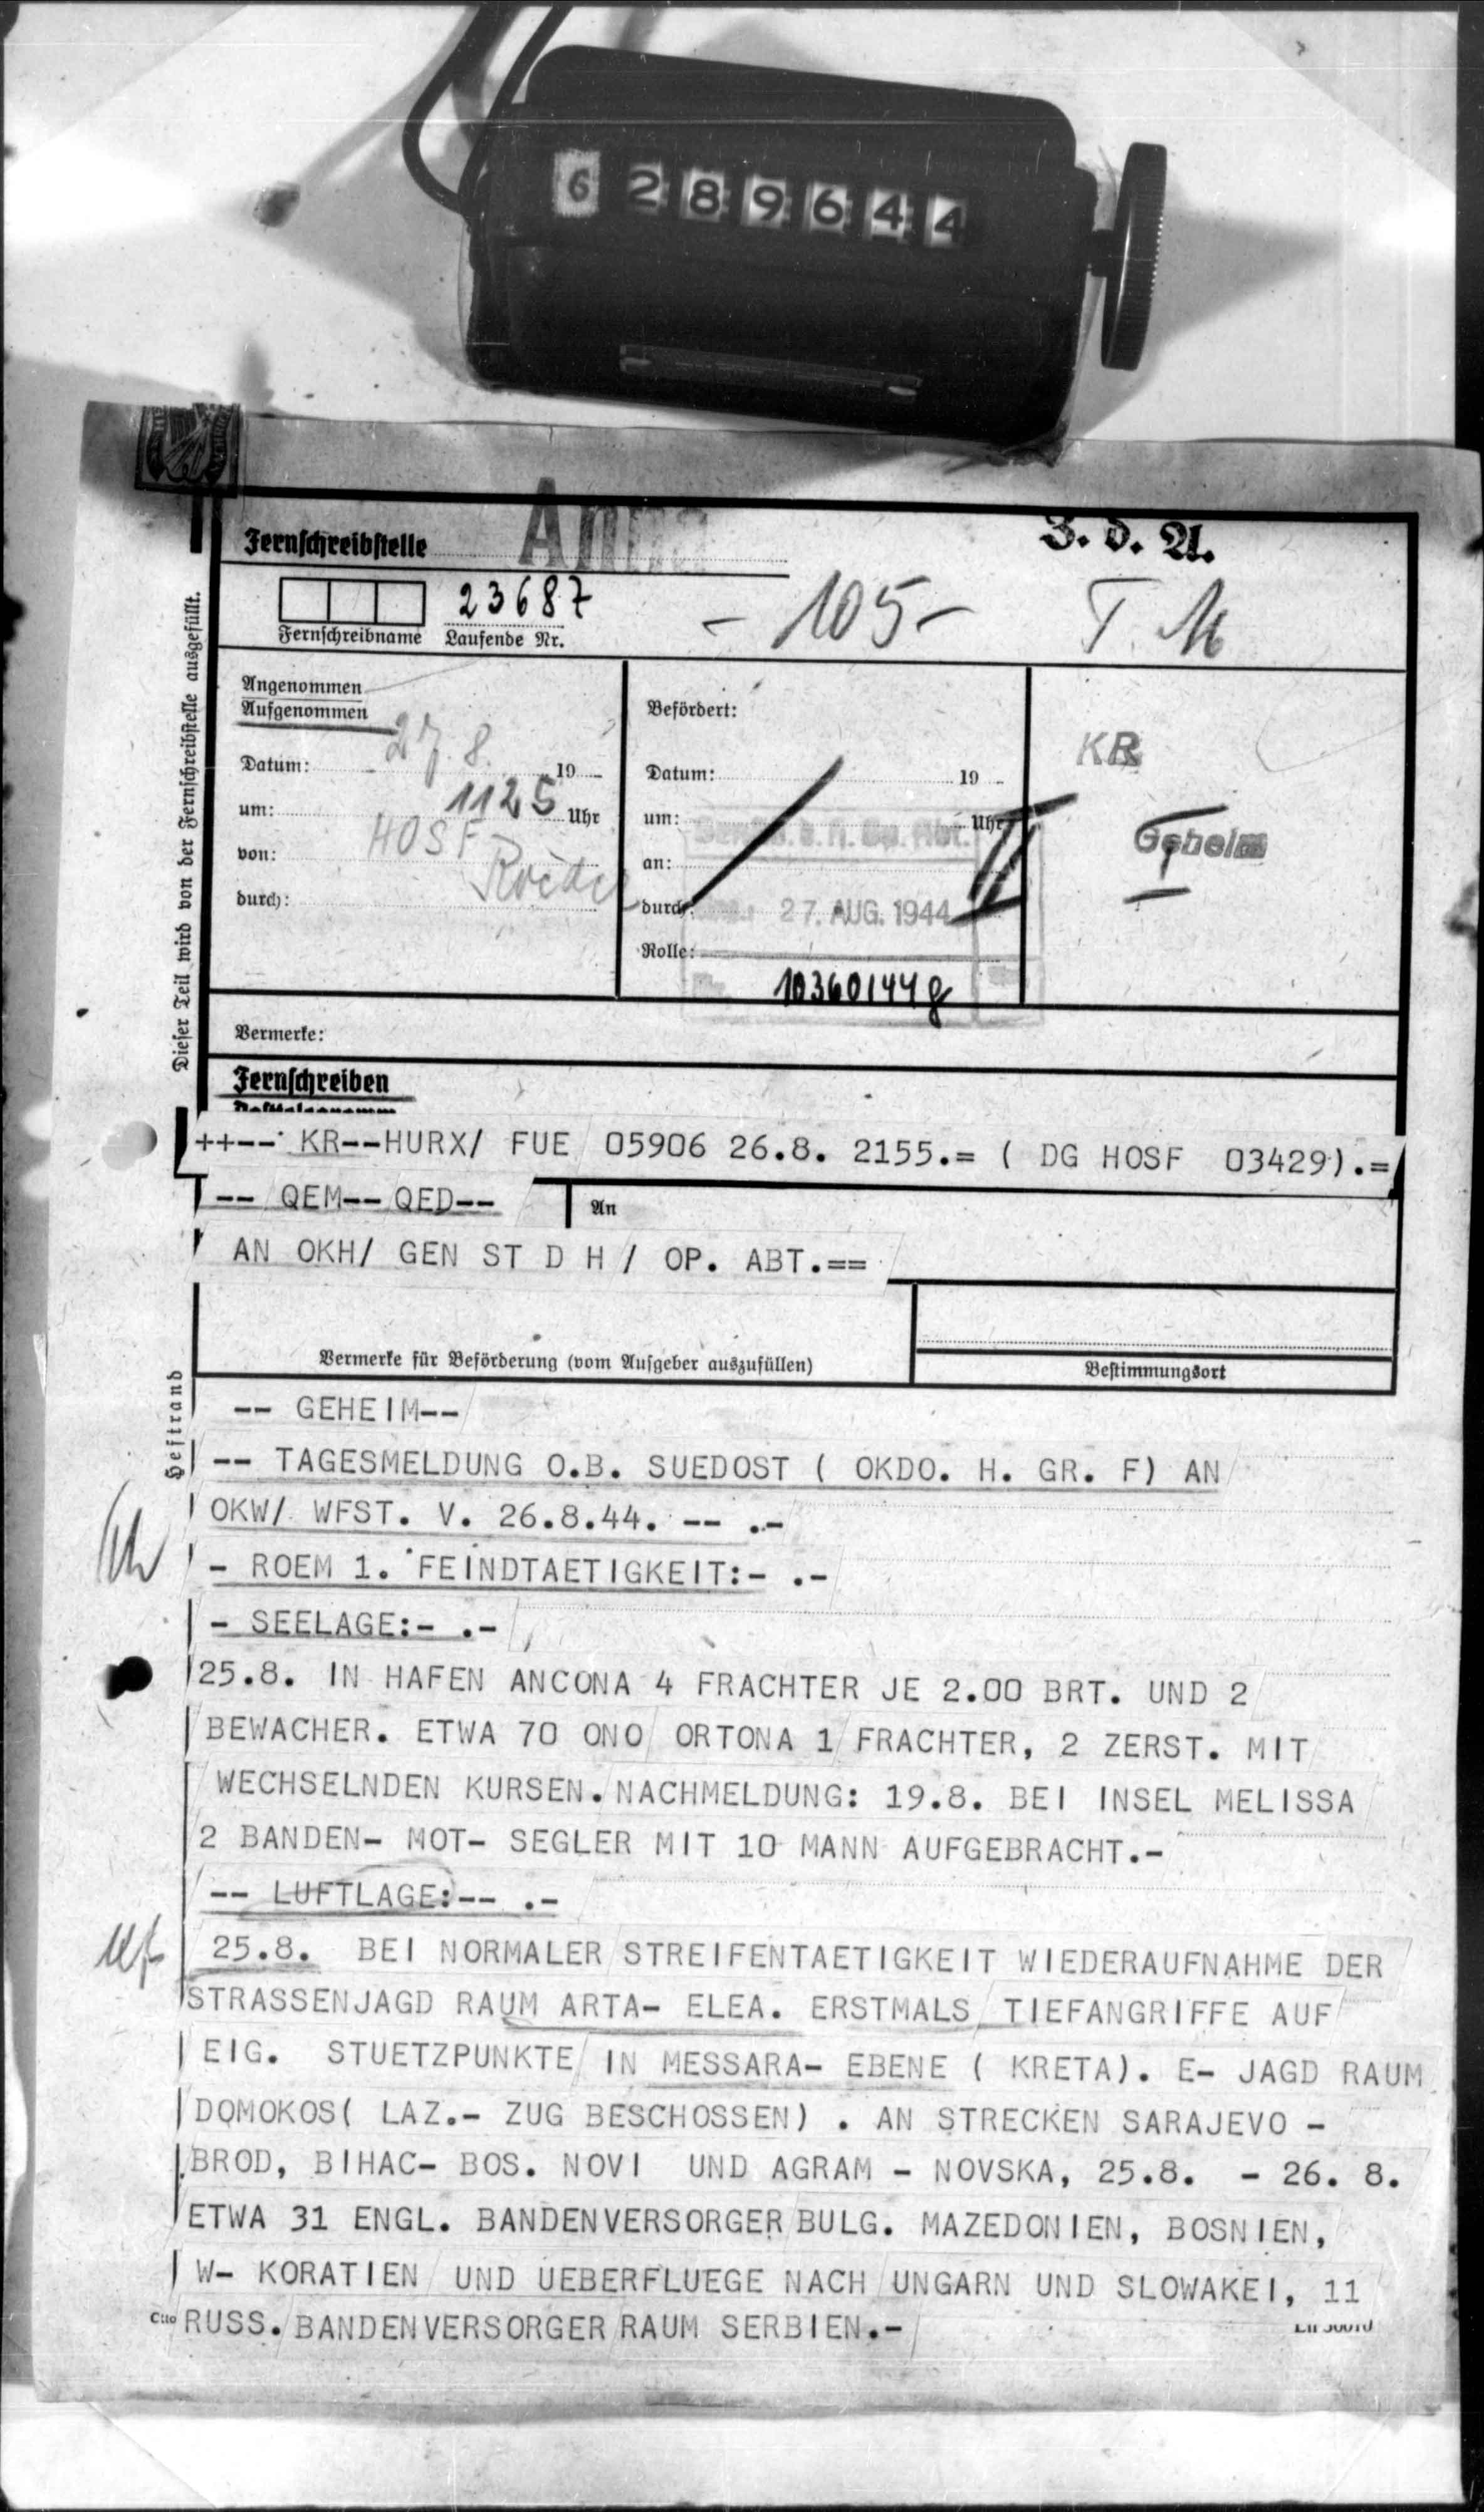 6 289644
Fernschreibstelle
Z. d. A.
23687
- 105 -
T. M
Fernschreibname Laufende Nr.
Dieser Teil wird von der Fernschreibstelle ausgefüllt.
Angenommen
Aufgenommen
Datum: 27.8. 19
um: 1125 Uhr
von: HOSF
durch:
Befördert:
Datum: 19
um: Uhr
an:
durch: 27. AUG. 1944
Rolle:
KR
Geheim
Vermerke:
Fernschreiben
++-- KR--HURX/ FUE 05906 26.8. 2155.= ( DG HOSF 03429).=
-- QEM-- QED--
An
AN OKH/ GEN ST D H / OP. ABT.==
Vermerke für Beförderung (vom Aufgeber auszufüllen)
Bestimmungsort
Heftrand
-- GEHEIM--
-- TAGESMELDUNG O.B. SUEDOST ( OKDO. H. GR. F) AN
OKW/ WFST. V. 26.8.44. -- .-
- ROEM 1. FEINDTAETIGKEIT:- .-
- SEELAGE:- .-
25.8. IN HAFEN ANCONA 4 FRACHTER JE 2.00 BRT. UND 2
BEWACHER. ETWA 70 ONO ORTONA 1 FRACHTER, 2 ZERST. MIT
WECHSELNDEN KURSEN. NACHMELDUNG: 19.8. BEI INSEL MELISSA
2 BANDEN- MOT- SEGLER MIT 10 MANN AUFGEBRACHT.-
-- LUFTLAGE:-- .-
25.8. BEI NORMALER STREIFENTAETIGKEIT WIEDERAUFNAHME DER
STRASSENJAGD RAUM ARTA- ELEA. ERSTMALS TIEFANGRIFFE AUF
EIG. STUETZPUNKTE IN MESSARA- EBENE ( KRETA). E- JAGD RAUM
DOMOKOS( LAZ.- ZUG BESCHOSSEN) . AN STRECKEN SARAJEVO -
BROD, BIHAC- BOS. NOVI UND AGRAM - NOVSKA, 25.8. - 26. 8.
ETWA 31 ENGL. BANDENVERSORGER BULG. MAZEDONIEN, BOSNIEN,
W- KORATIEN UND UEBERFLUEGE NACH UNGARN UND SLOWAKEI, 11
RUSS. BANDENVERSORGER RAUM SERBIEN.-